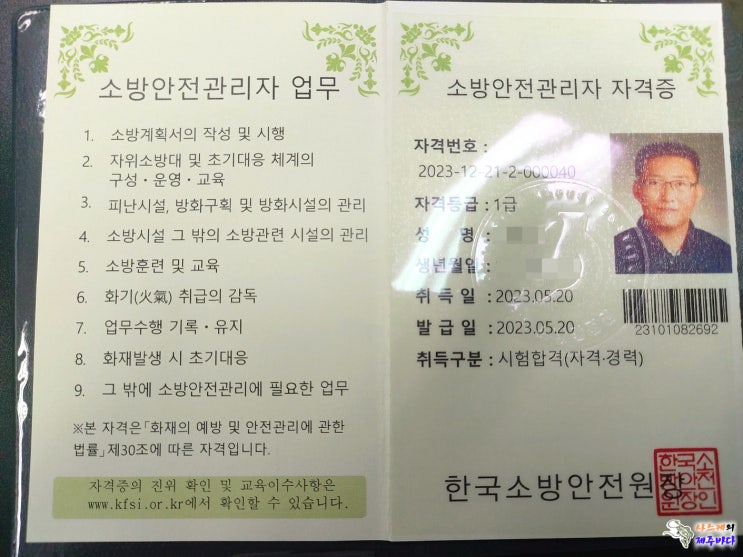 소방안전관리자 업무
1. 소방계획서의 작성 및 시행
2. 자위소방대 및 초기대응 체계의
구성·운영·교육
3. 피난시설, 방화구획 및 방화시설의 관리
4. 소방시설 그 밖의 소방관련 시설의 관리
5. 소방훈련 및 교육
6. 화기(火氣) 취급의 감독
7. 업무수행 기록·유지
8. 화재발생 시 초기대응
9. 그 밖에 소방안전관리에 필요한 업무
※본 자격은「화재의 예방 및 안전관리에 관한
법률」제30조에 따른 자격입니다.
자격증의 진위 확인 및 교육이수사항은
www.kfsi.or.kr에서 확인할 수 있습니다.
소방안전관리자 자격증
자격번호 :
2023-12-21-2-000040
자격등급 : 1급
성 명 :
생년월일 :
취 득 일 : 2023.05.20
발 급 일 : 2023.05.20
취득구분 : 시험합격(자격·경력)
23101082692
한국소방안전원장
사느레의
제주바다